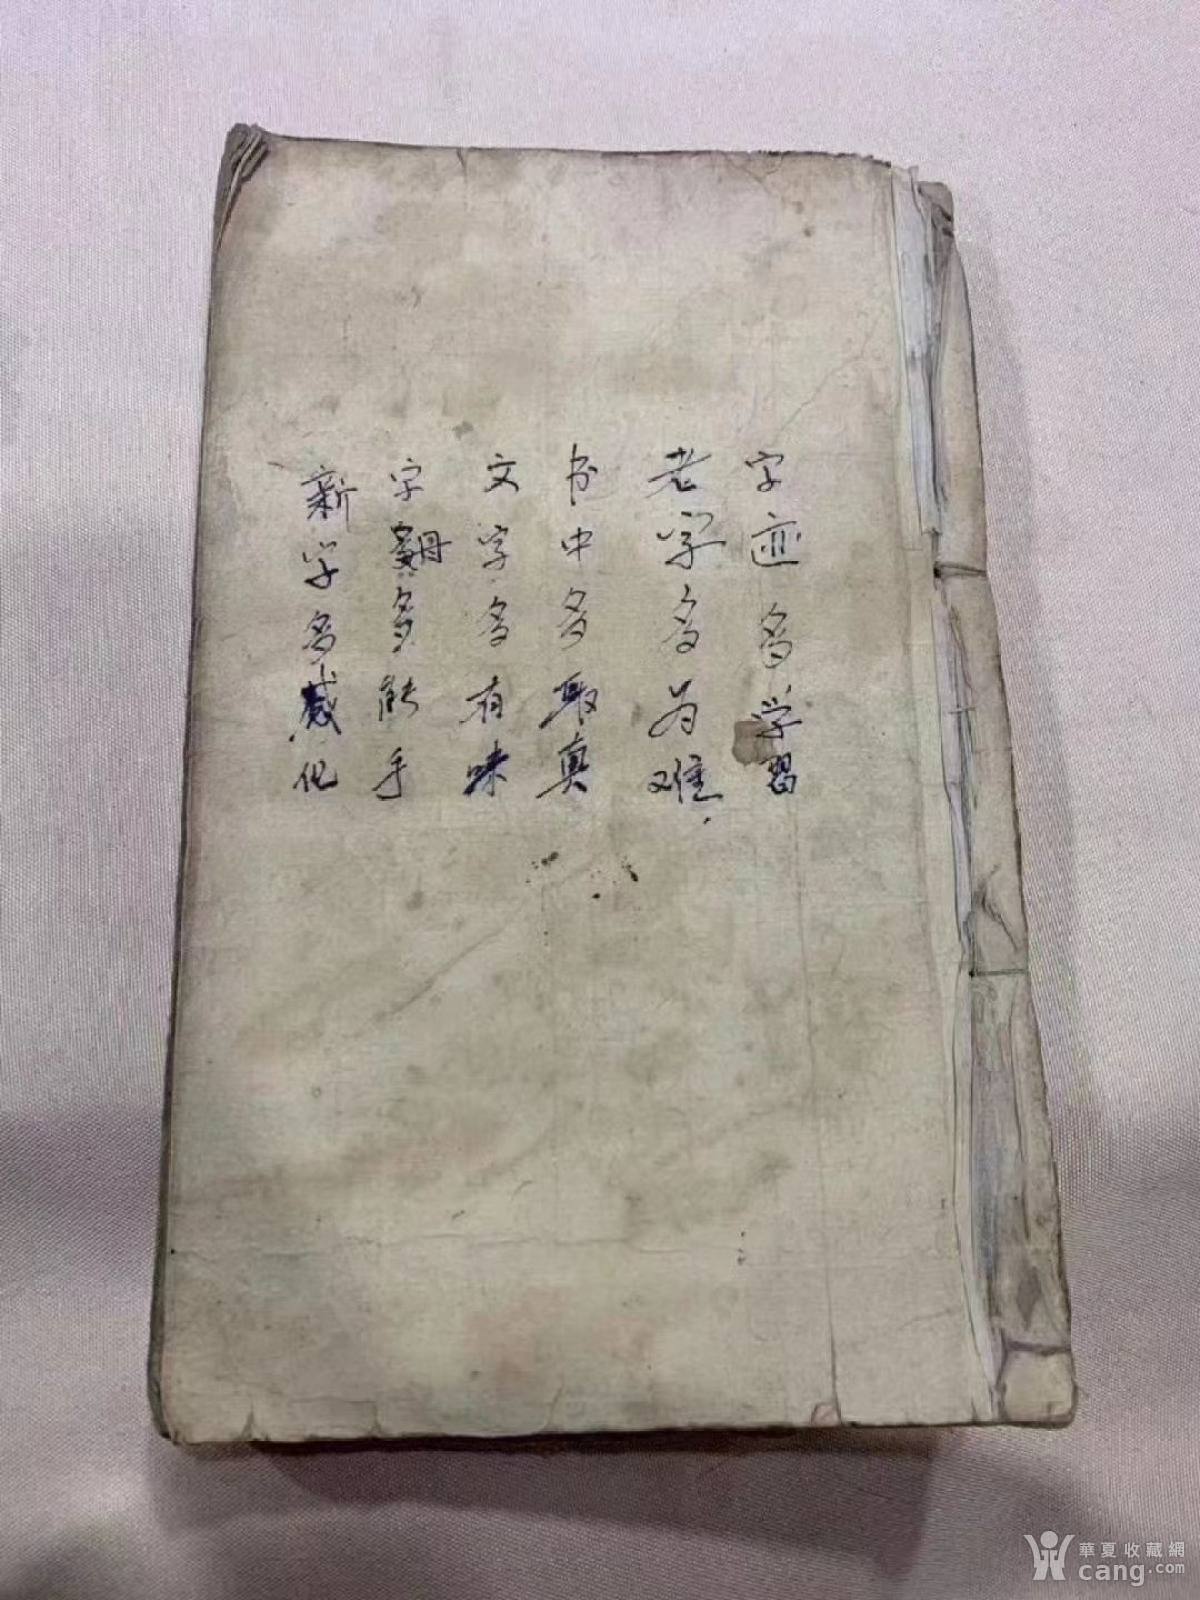 字迹多学習
老字多为难
书中多取真
文字多有味
字母多能手
新字多感化
華夏收藏網
cang.com